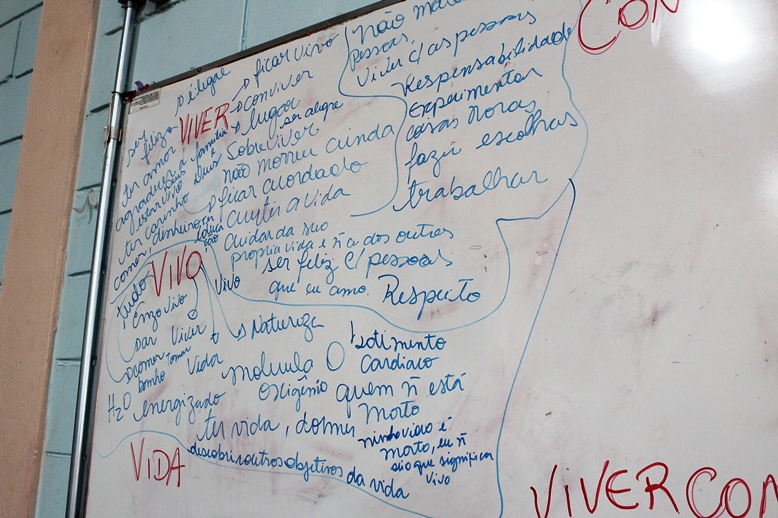 CON
não mata
pessoas,
viver c/ as pessoas
Responsabilidade
Experimentar
coisas novas
fazer escolhas
trabalhar
alegre
ficar vivo
VIVER
conviver
lugar
ser alegre
Sobreviver
não morreu ainda
ficar acordado
curtir a vida
cuidar da sua
propria vida e ñ a dos outros
ser feliz c/ pessoas
que eu amo. Respeito
ser
feliz
ter amor
família
Deus
ter carinho
comer, dinheiro, ser
tudo
VIVO
Vivo
Enzo vivo
Viver
comer
tomar
banho
Vida
Natureza
H2O
energizado
molecula O
oxigênio
batimento
cardíaco
quem ñ está
morto
ter vida, dormir
morto, eu ñ
sei o que significa
vivo
VIDA
descobrir outros objetivos da vida
VIVER CON